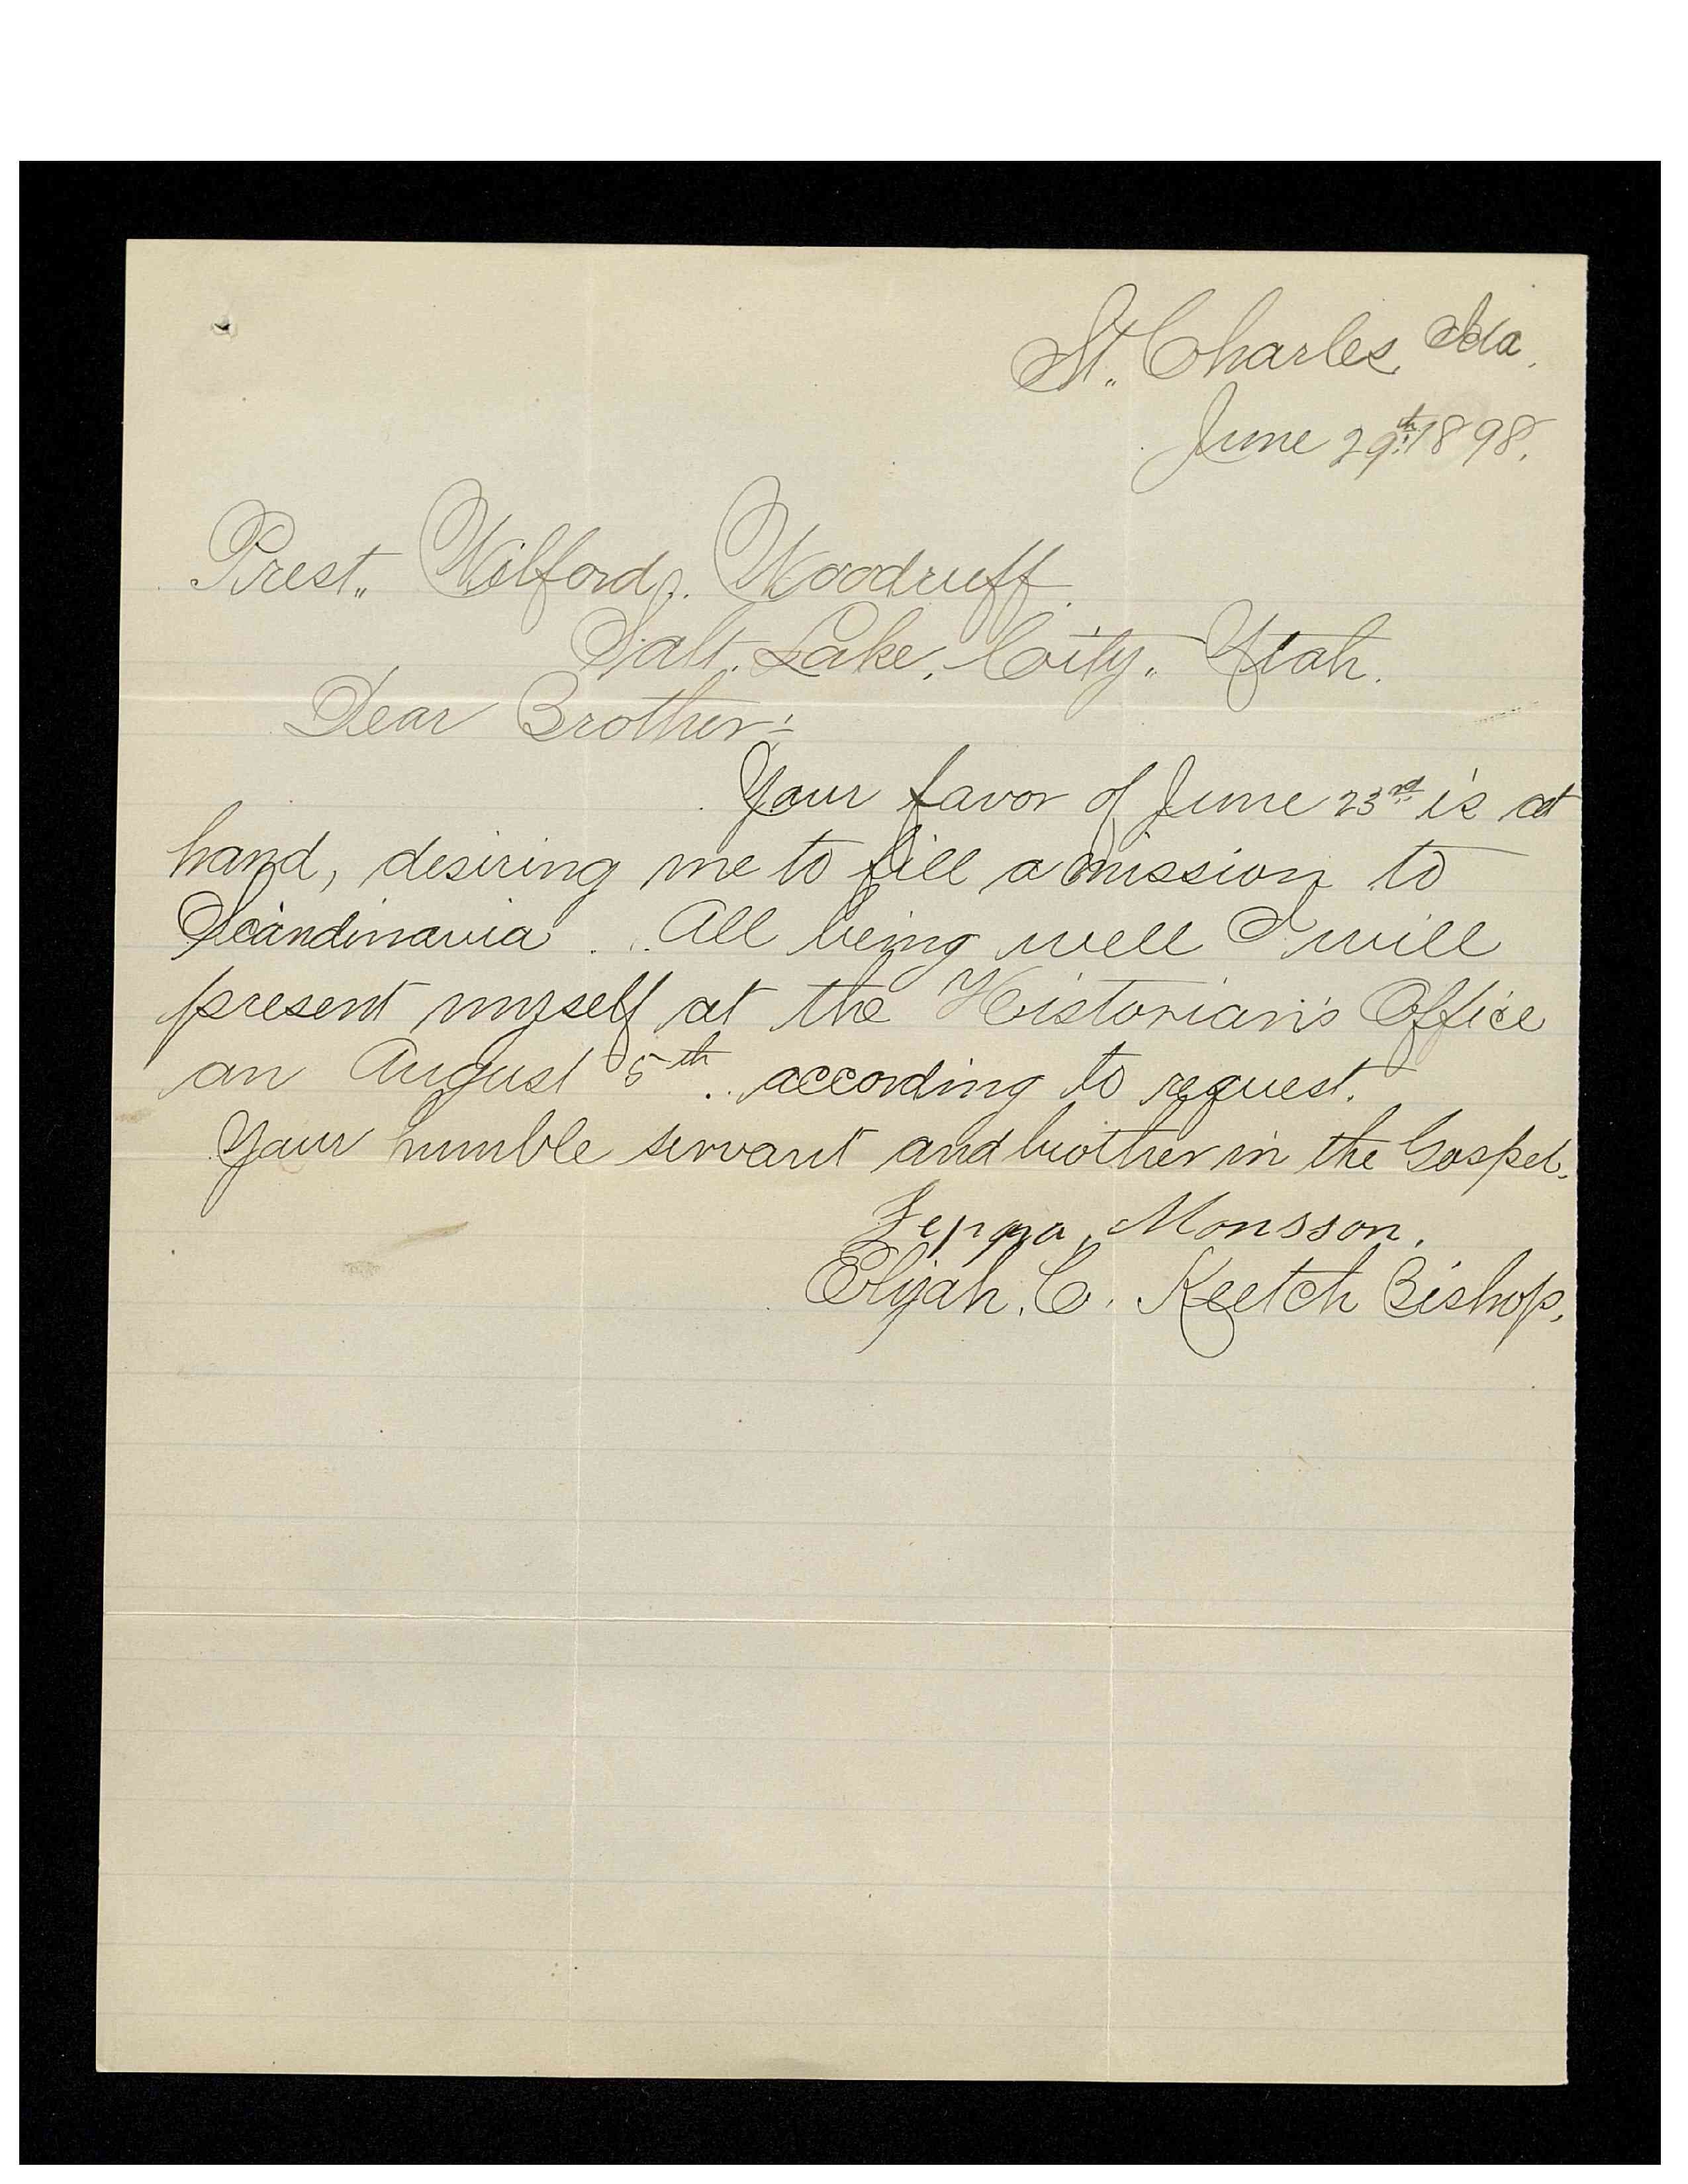 St. Charles, Ida.
June 29th. 1898.
Prest. Wilford. Woodruff.
Salt. Lake. City. Utah.
Dear Brother:
Your favor of June 23rd is at
hand, desiring me to fill a mission to
Scandinavia. All being well I will
present myself at the Historian's Office
on August 5th. according to request.
Your humble servant and brother in the Gospel.
Monsson.
Elijah. C. Keetch Bishop.